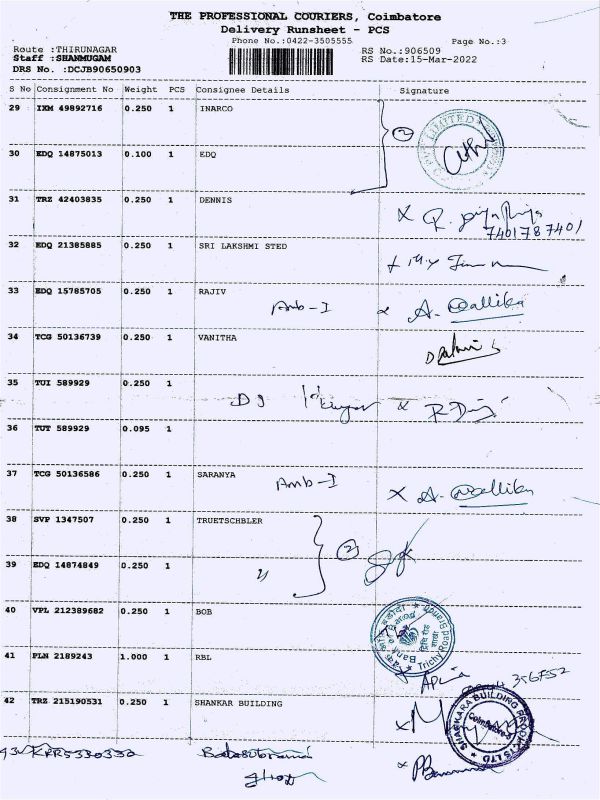 THE PROFESSIONAL COURIERS, Coimbatore
Delivery Runsheet - PCS
Phone No.:0422-3505555
Page No.:3
Route :THIRUNAGAR
RS No.:906509
Staff :SHANMUGAM
RS Date:15-Mar-2022
DRS No. :DCJB90650903
S No Consignment No Weight PCS Consignee Details Signature
29 IXM 49892716 0.250 1 INARCO
2
LIMITED
30 EDQ 14875013 0.100 1 EDQ
31 TRZ 42403835 0.250 1 DENNIS
7401787401
32 EDQ 21385885 0.250 1 SRI LAKSHMI STED
33 EDQ 15785705 0.250 1 RAJIV
Amb-I A. Mallika
34 TCG 50136739 0.250 1 VANITHA
35 TUI 589929 0.250 1
36 TUT 589929 0.095 1
37 TCG 50136586 0.250 1 SARANYA
Amb-I A. Mallika
38 SVP 1347507 0.250 1 TRUETSCHBLER
2
39 EDQ 14874849 0.250 1
40 VPL 212389682 0.250 1 BOB
Bank of Baroda
Trichy Road
41 PLN 2189243 1.000 1 RBL
42 TRZ 215190531 0.250 1 SHANKAR BUILDING
SHANKARA BUILDING PRODUCTS LTD
Coimbatore